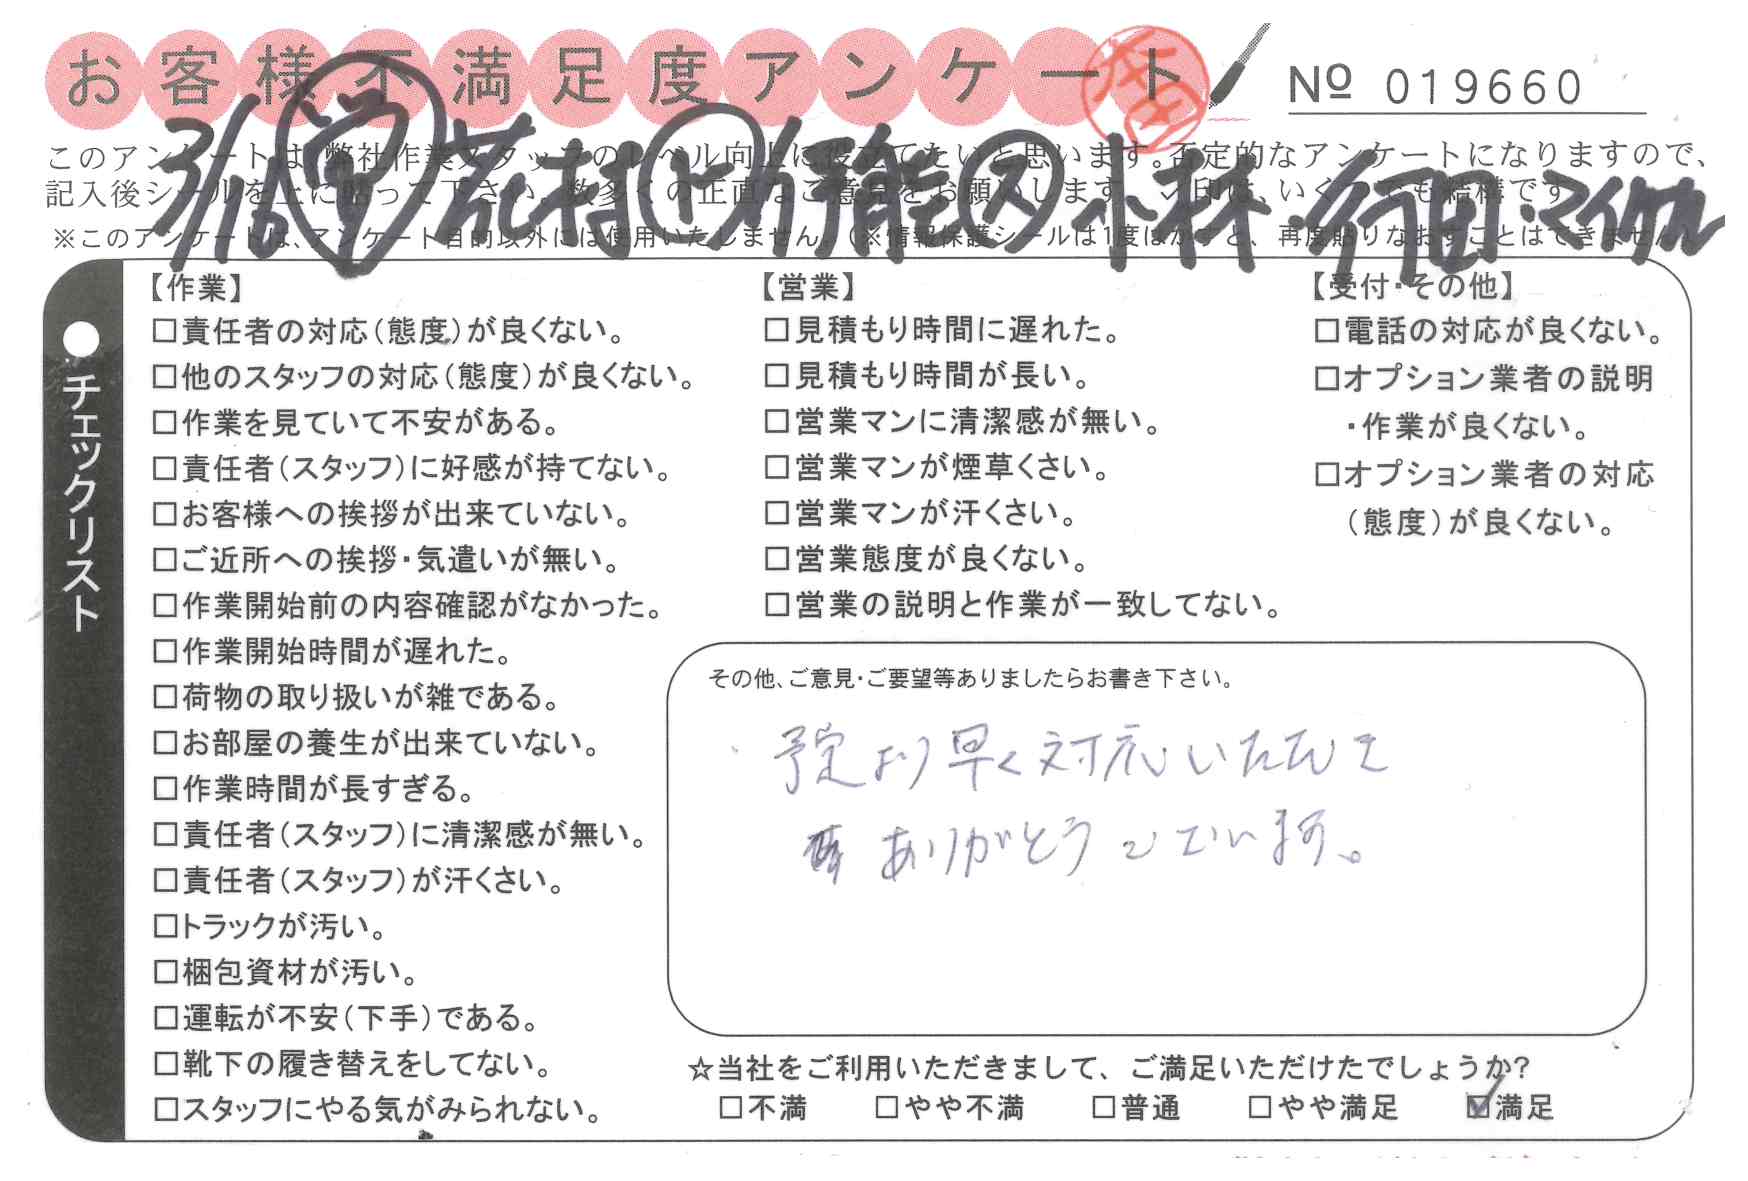 お客様不満足度アンケート
№ 019660
3/16 営 荒村 ト 伊能 ス 小林・行田・マイケル
このアンケートは、弊社作業スタッフのレベル向上に役立てたいと思います。否定的なアンケートになりますので、
記入後シールを上に貼って下さい。数多くの正直なご意見をお願いします。レ印は、いくつでも結構です。
※このアンケートは、アンケート目的以外には使用いたしません。(※情報保護シールは1度はがすと、再度貼りなおすことはできません)
●チェックリスト
【作業】
□責任者の対応(態度)が良くない。
□他のスタッフの対応(態度)が良くない。
□作業を見ていて不安がある。
□責任者(スタッフ)に好感が持てない。
□お客様への挨拶が出来ていない。
□ご近所への挨拶・気遣いが無い。
□作業開始前の内容確認がなかった。
□作業開始時間が遅れた。
□荷物の取り扱いが雑である。
□お部屋の養生が出来ていない。
□作業時間が長すぎる。
□責任者(スタッフ)に清潔感が無い。
□責任者(スタッフ)が汗くさい。
□トラックが汚い。
□梱包資材が汚い。
□運転が不安(下手)である。
□靴下の履き替えをしてない。
□スタッフにやる気がみられない。
【営業】
□見積もり時間に遅れた。
□見積もり時間が長い。
□営業マンに清潔感が無い。
□営業マンが煙草くさい。
□営業マンが汗くさい。
□営業態度が良くない。
□営業の説明と作業が一致してない。
【受付・その他】
□電話の対応が良くない。
□オプション業者の説明
・作業が良くない。
□オプション業者の対応
(態度)が良くない。
その他、ご意見・ご要望等ありましたらお書き下さい。
予定より早く対応いただき
ありがとうございます。
☆当社をご利用いただきまして、ご満足いただけたでしょうか?
□不満 □やや不満 □普通 □やや満足 ☑満足